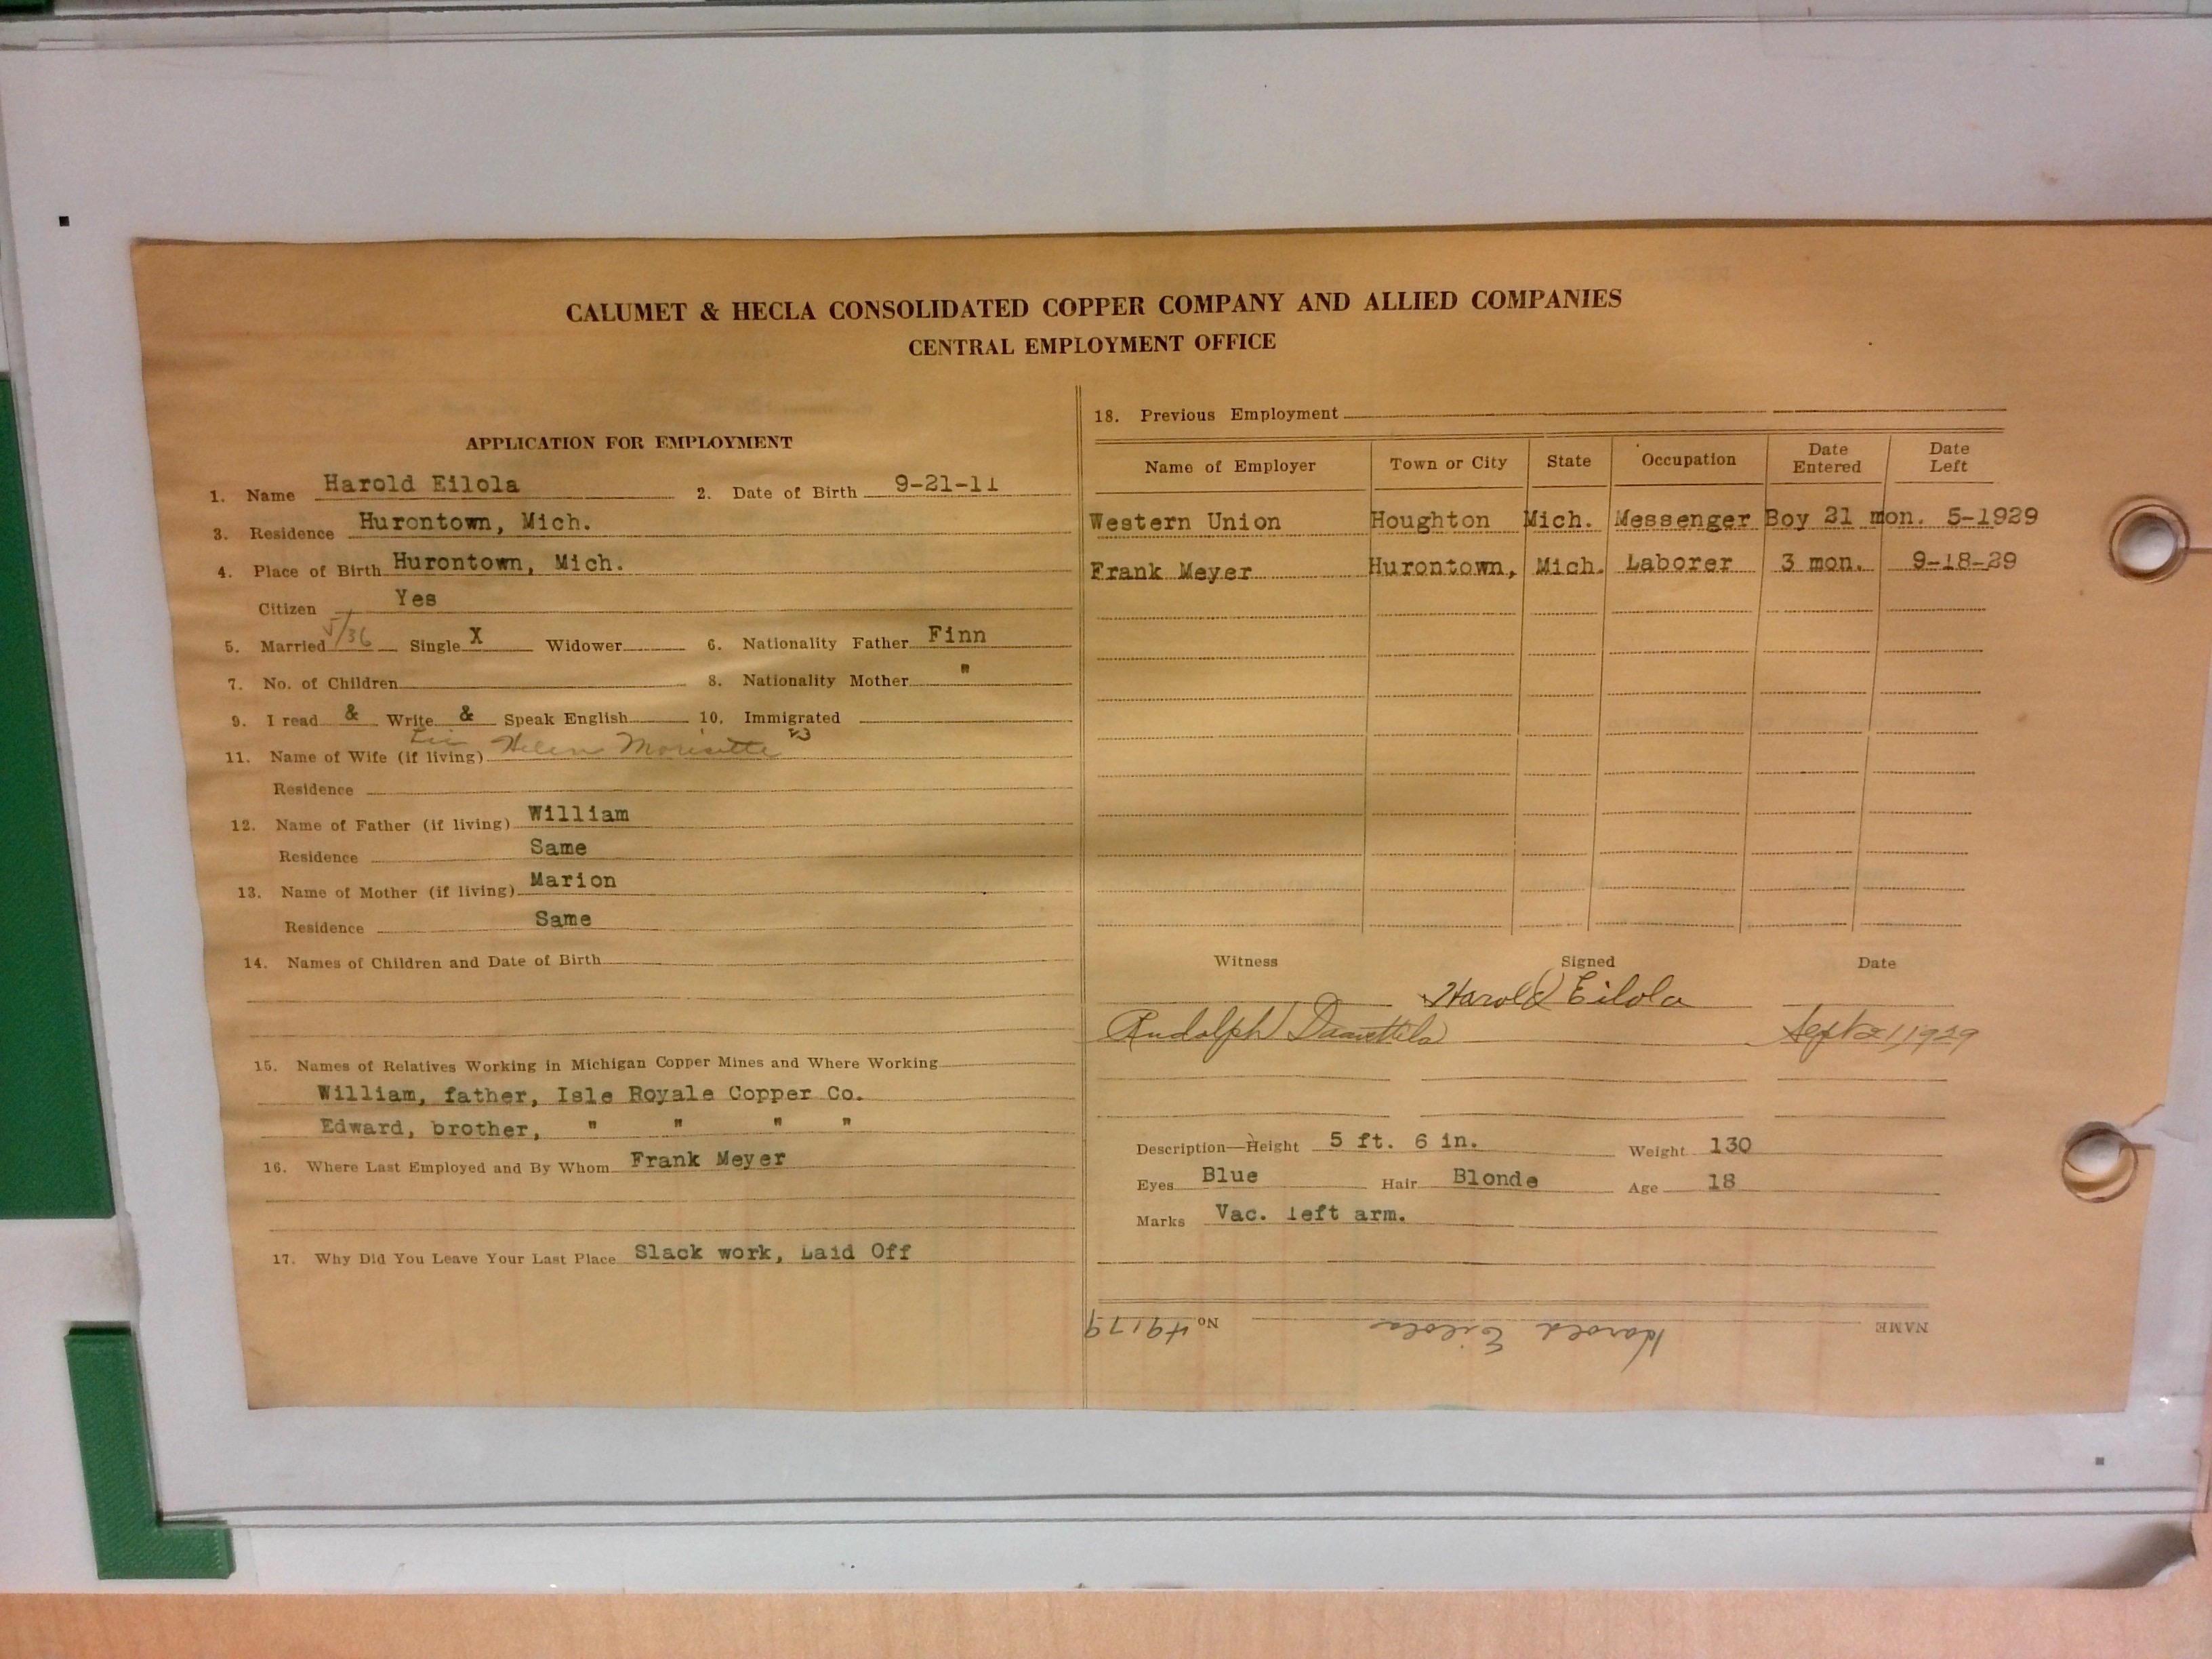 CALUMET & HECLA CONSOLIDATED COPPER COMPANY AND ALLIED COMPANIES
CENTRAL EMPLOYMENT OFFICE
APPLICATION FOR EMPLOYMENT
1. Name Harold Eilola 2. Date of Birth 9-21-11
3. Residence Hurontown, Mich.
4. Place of Birth Hurontown, Mich.
Citizen Yes
5. Married 5/36 Single X Widower 6. Nationality Father Finn
7. No. of Children 8. Nationality Mother "
9. I read & Write & Speak English 10. Immigrated
11. Name of Wife (if living) Helen Morisette
Residence
12. Name of Father (if living) William
Residence Same
13. Name of Mother (if living) Marion
Residence Same
14. Names of Children and Date of Birth
15. Names of Relatives Working in Michigan Copper Mines and Where Working
William, father, Isle Royale Copper Co.
Edward, brother, " " " "
16. Where Last Employed and By Whom Frank Meyer
17. Why Did You Leave Your Last Place Slack work, Laid Off
18. Previous Employment
Name of Employer Town or City State Occupation Date Entered Date Left
Western Union Houghton Mich. Messenger Boy 21 mon. 5-1929
Frank Meyer Hurontown, Mich. Laborer 3 mon. 9-18-29
Witness Signed Date
Harold Eilola
Rudolph Sept 21, 1929
Description—Height 5 ft. 6 in. Weight 130
Eyes Blue Hair Blonde Age 18
Marks Vac. left arm.
NAME Harold Eilola No. 49179